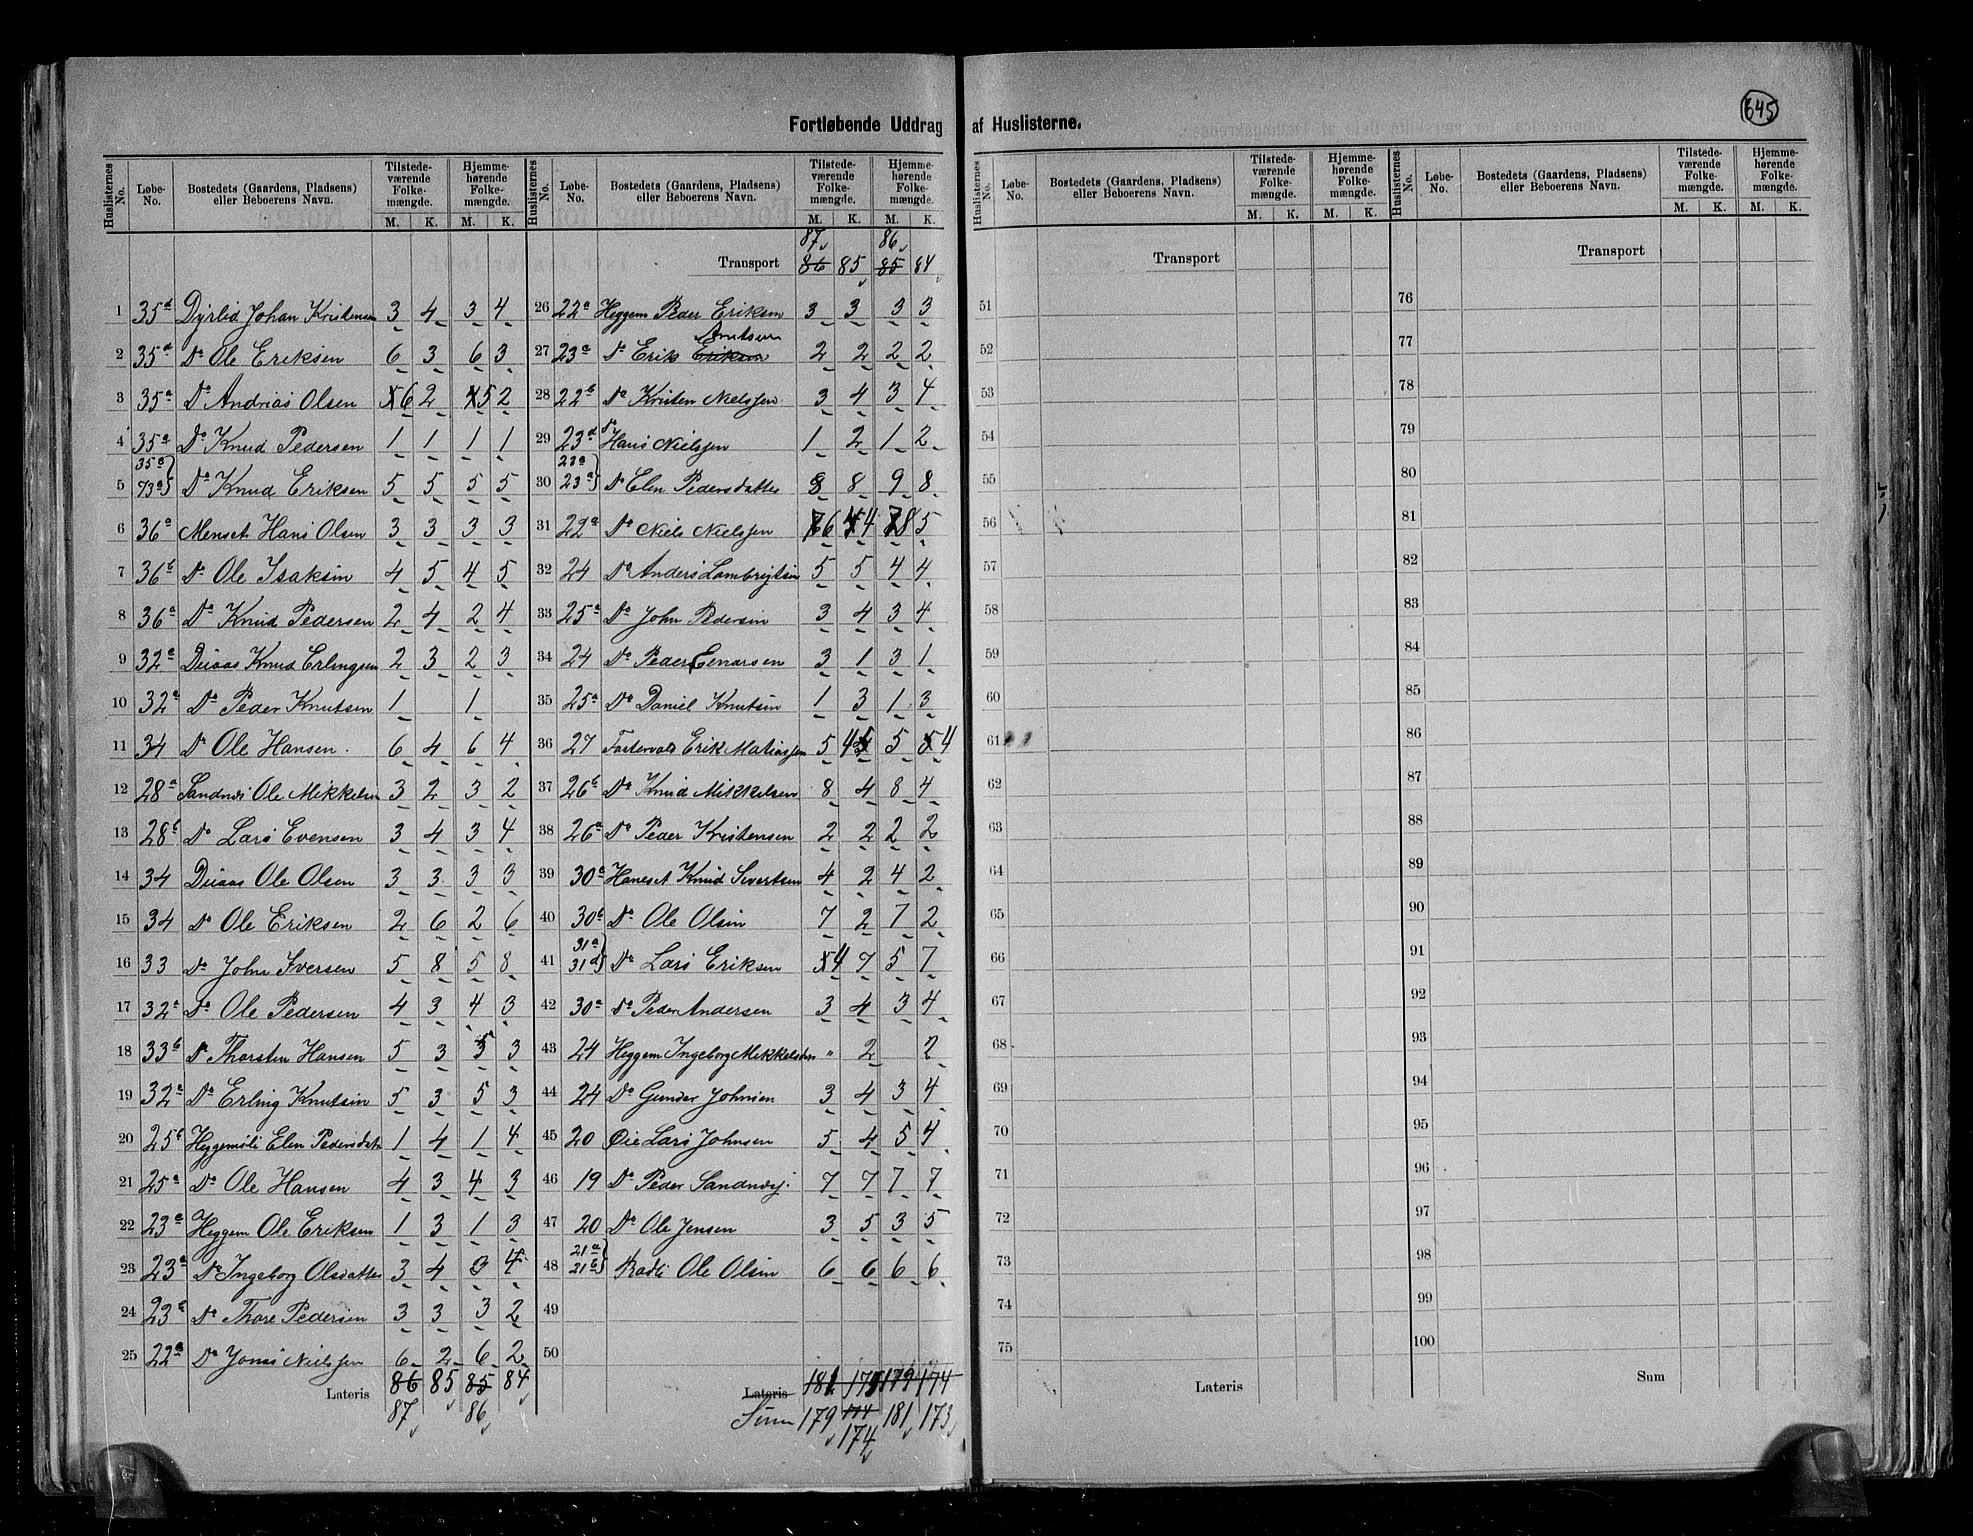 645
Fortløbende Uddrag af Huslisterne.
Huslisternes No. Løbe-No. Bostedets (Gaardens, Pladsens) eller Beboerens Navn. Tilstede-værende Folke-mængde. M. K. Hjemme-hørende Folke-mængde. M. K.
1 35a Dyrlid Johan Kristensen 3 4 3 4
2 35a Do Ole Eriksen 6 3 6 3
3 35a Do Andrias Olsen 6 2 5 2
4 35a Do Knud Pedersen 1 1 1 1
5 35a 93a Do Knud Eriksen 5 5 5 5
6 36a Menset Hans Olsen 3 3 3 3
7 36b Do Ole Isaksen 4 5 4 5
8 36a Do Knud Pedersen 2 4 2 4
9 32a Duaas Knud Erlingsen 2 3 2 3
10 32a Do Peder Knutsen 1 1
11 34 Do Ole Hansen. 6 4 6 4
12 28a Sandnes Ole Mikkelsen 3 2 3 2
13 28b Do Lars Evensen 3 4 3 4
14 34 Duaas Ole Olsen 3 3 3 3
15 34 Do Ole Eriksen 2 6 2 6
16 33 Do John Iversen 5 8 5 8
17 32a Do Ole Pedersen 4 3 4 3
18 33b Do Thorsten Hansen 5 3 5 3
19 32a Do Erling Knutsen 5 3 5 3
20 25b Heggemsli Elen Pedersdatr 1 4 1 4
21 25a Do Ole Hansen 4 3 4 3
22 23a Heggem Ole Eriksen 1 3 1 3
23 23a Do Ingeborg Olsdatter 3 4 3 4
24 23a Do Thore Pedersen 3 3 3 2
25 22a Do Jonas Nielssen 6 2 6 2
Lateris 86 85 85 84
87 86
Huslisternes No. Løbe-No. Bostedets (Gaardens, Pladsens) eller Beboerens Navn. Tilstede-værende Folke-mængde. M. K. Hjemme-hørende Folke-mængde. M. K.
87 86
Transport 86 85 85 84
26 22a Heggem Peder Eriksen 3 3 3 3
Knutsen
27 23a Do Erik Eriksen 2 2 2 2
28 22b Do Kristen Nielssen. 3 4 3 4
29 23a Do Hans Nielssen 1 2 1 2
30 22a 23a Do Elen Pedersdatter 8 8 9 8
31 22a Do Niels Nielssen 7 6 5 4 7 8 5
32 24 Do Anders Lambregtsen 5 5 4 4
33 25a Do John Pedersen 3 4 3 4
34 24 Do Peder Einarsen 3 1 3 1
35 25a Do Daniel Knutsen 1 3 1 3
36 27 Erik Matiassen 5 4 5 5 5 4
37 26b Do Knud Mikkelsen 8 4 8 4
38 26a Do Peder Kristensen 2 2 2 2
39 30a Haneset Knud Sivertsen 4 2 4 2
40 30b Do Ole Olsen 7 2 7 2
41 31a 31b Do Lars Eriksen 4 7 5 7
42 30a Do Peder Andersen 3 4 3 4
43 24 Heggem Ingeborg Mikkelsdtr " 2 2
44 24 Do Gunder Johnsen 3 4 3 4
45 20 Øie Lars Johnsen 5 4 5 4
46 19 Do Peder Sandnesj. 7 7 7 7
47 20 Do Ole Jensen 3 5 3 5
48 21a 21b Ole Olsen 6 6 6 6
49
50
Lateris 181 175 179 174
Sum 179 174 181 173
174
Huslisternes No. Løbe-No. Bostedets (Gaardens, Pladsens) eller Beboerens Navn. Tilstede-værende Folke-mængde. M. K. Hjemme-hørende Folke-mængde. M. K.
Transport
51
52
53
54
55
56
57
58
59
60
61
62
63
64
65
66
67
68
69
70
71
72
73
74
75
Lateris
Huslisternes No. Løbe-No. Bostedets (Gaardens, Pladsens) eller Beboerens Navn. Tilstede-værende Folke-mængde. M. K. Hjemme-hørende Folke-mængde. M. K.
Transport
76
77
78
79
80
81
82
83
84
85
86
87
88
89
90
91
92
93
94
95
96
97
98
99
100
Sum